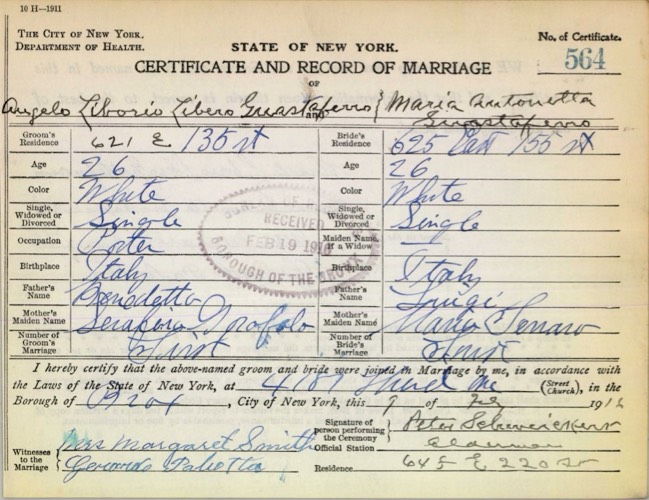 10 H—1911
THE CITY OF NEW YORK.
DEPARTMENT OF HEALTH.
STATE OF NEW YORK.
No. of Certificate.
564
CERTIFICATE AND RECORD OF MARRIAGE
OF
Angelo Liborio Libero Guastaferro and Maria Antonetta
Guastaferro
Groom's Residence 621 E 135 st Bride's Residence 625 East 155 st
Age 26 Age 26
Color White Color White
Single, Widowed or Divorced Single Single, Widowed or Divorced Single
Occupation Porter Maiden Name, if a Widow —
Birthplace Italy Birthplace Italy
Father's Name Benedetto Father's Name Luigi
Mother's Maiden Name Serafina Mother's Maiden Name Maria
Number of Groom's Marriage First Number of Bride's Marriage First
BUREAU OF
RECEIVED
FEB 19
BOROUGH OF THE BRONX
I hereby certify that the above-named groom and bride were joined in Marriage by me, in accordance
with the Laws of the State of New York, at Third Ave (Street Church), in the
Borough of Bronx, City of New York, this 9 of 191
Signature of person performing the Ceremony Peter
Witnesses to the Marriage Mrs Margaret Smith
Official Station Alderman
Gerardo Paliotta
Residence 645 E 220 St